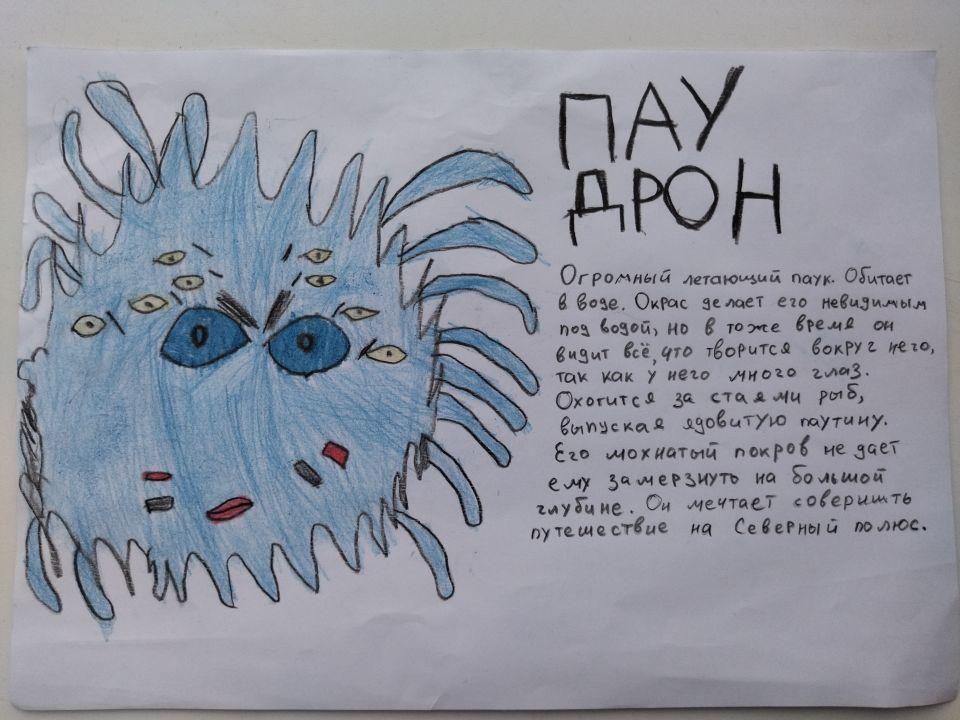 ПАУ
ДРОН
Огромный летающий паук. Обитает
в воде. Окрас делает его невидимым
под водой, но в тоже время он
видит всё, что творится вокруг него,
так как у него много глаз.
Охотится за стаями рыб,
выпуская ядовитую паутину.
Его мохнатый покров не дает
ему замерзнуть на большой
глубине. Он мечтает соверишть
путешествие на Северный полюс.